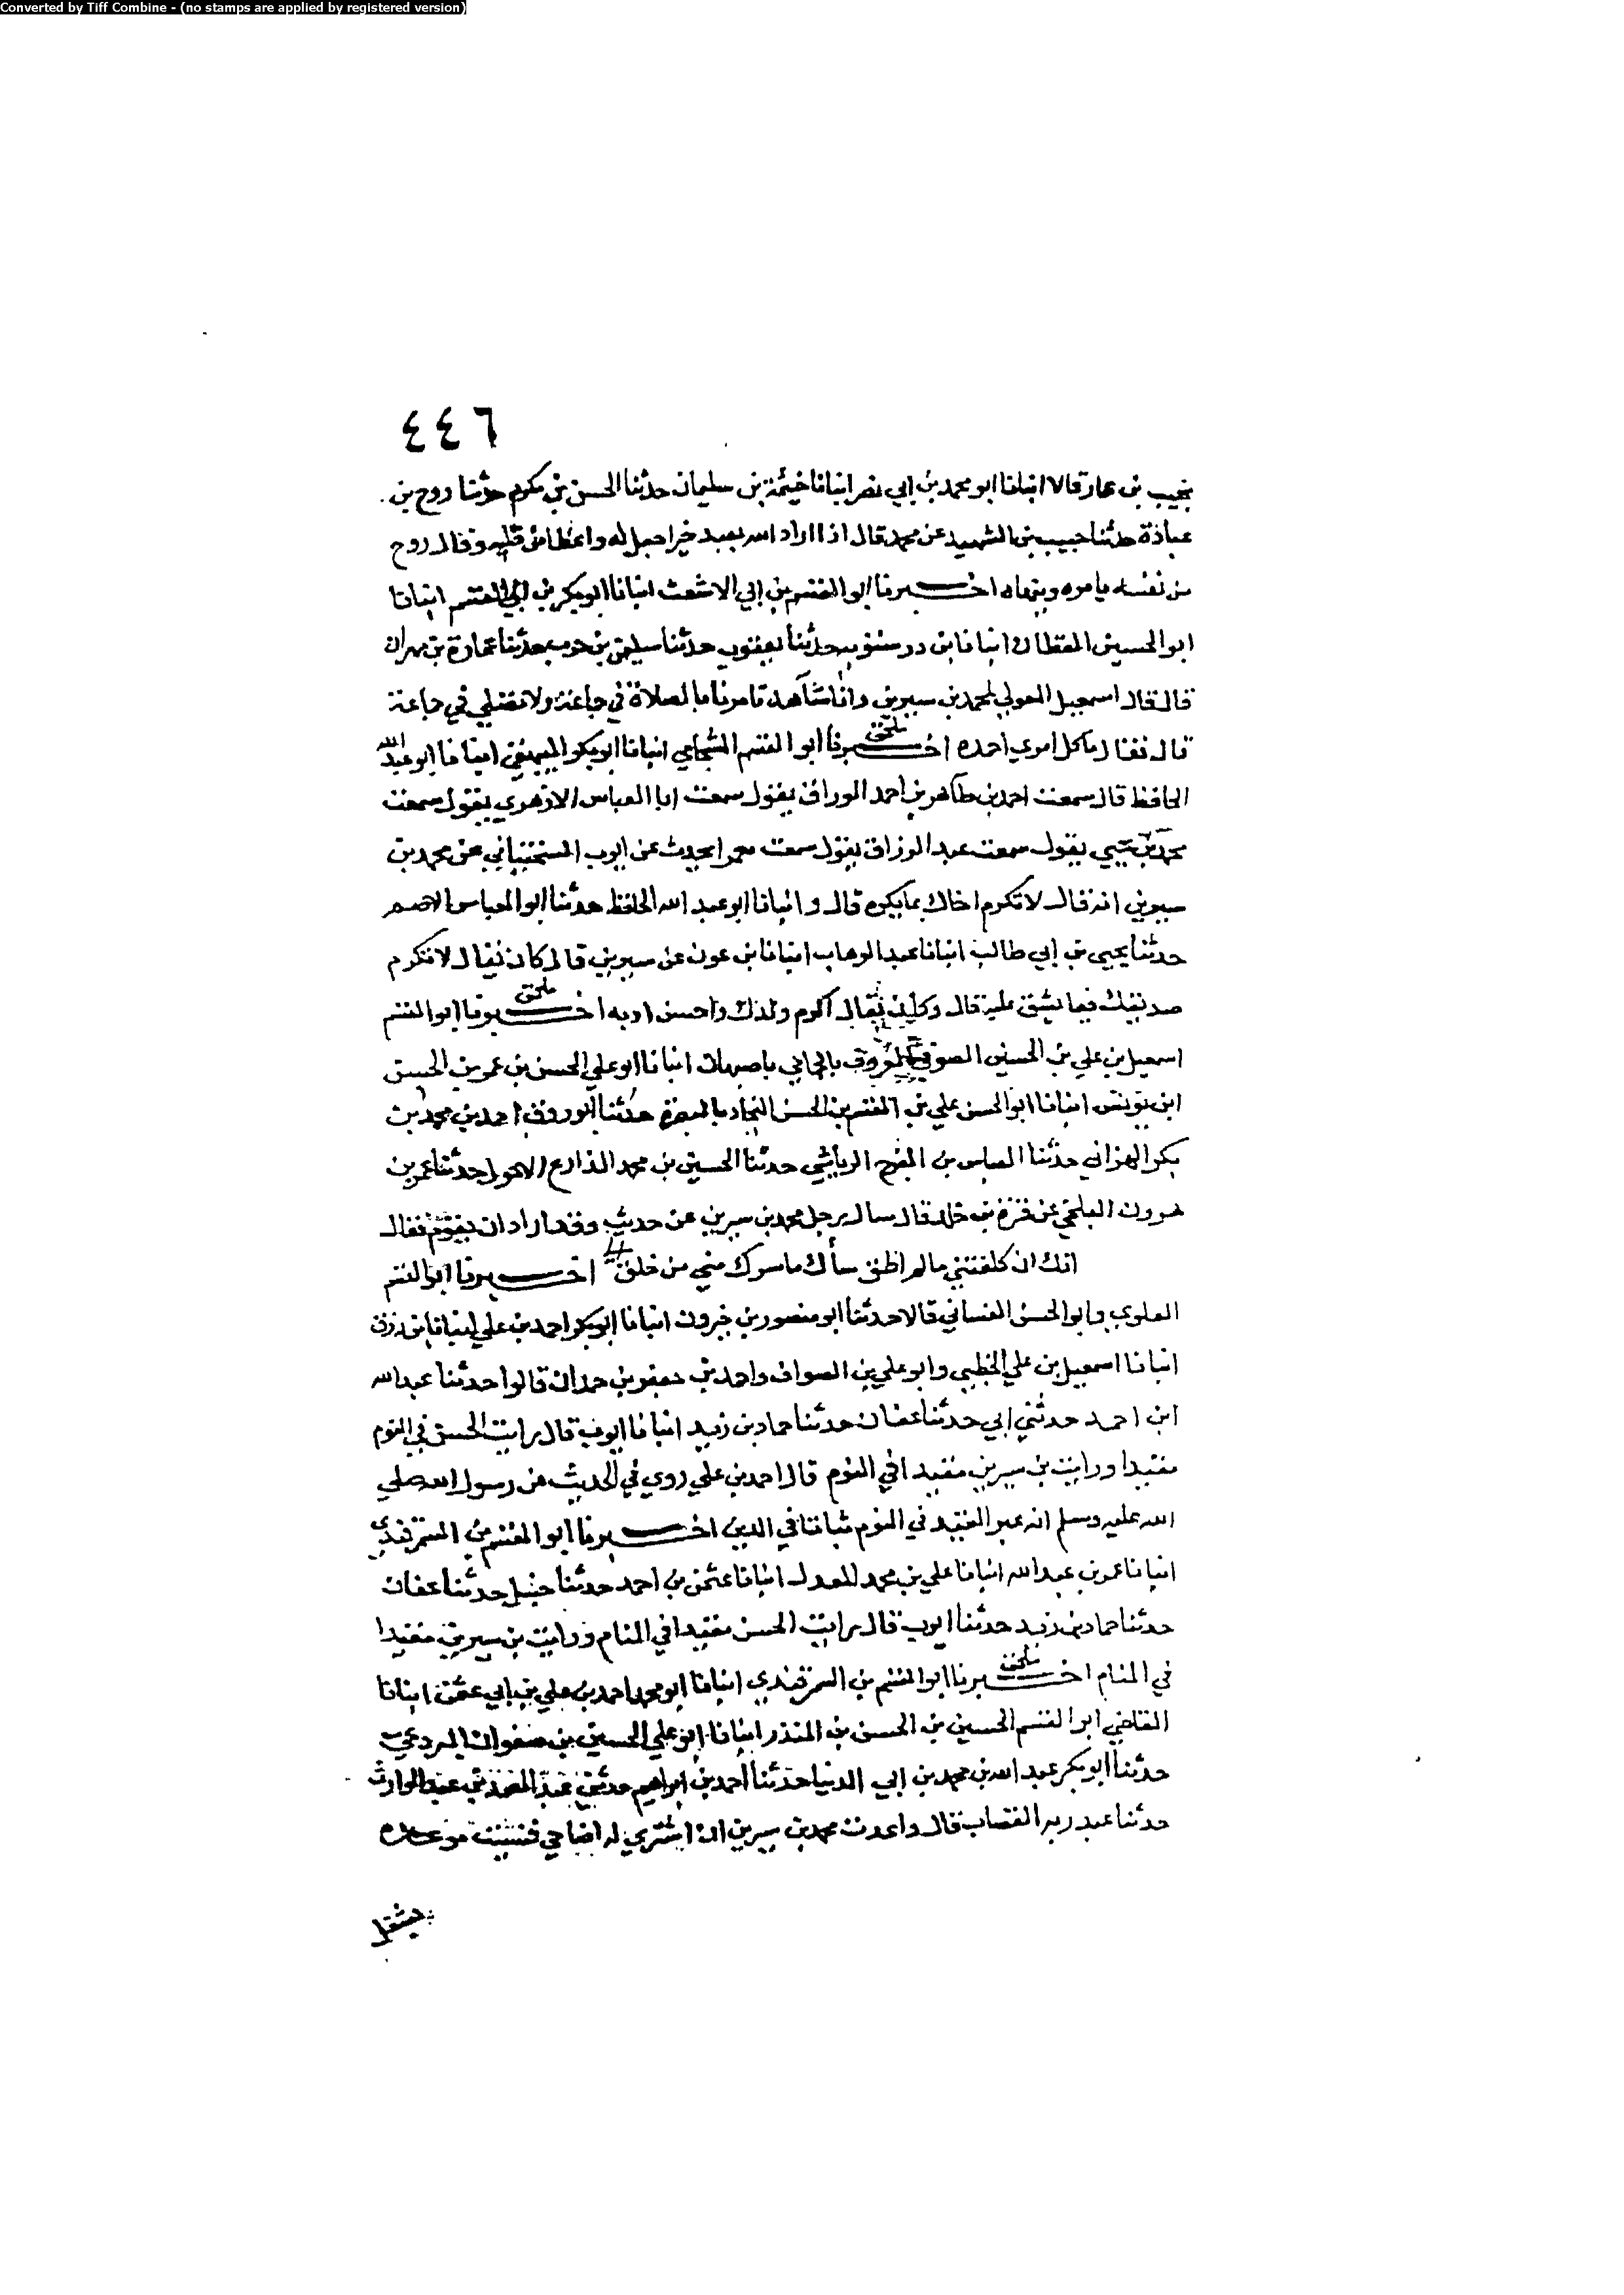 Converted by Tiff Combine - (no stamps are applied by registered version)
٤٤٦
نجيب بن عمار قالا انبانا ابو محمد بن ابي نصر انبانا خيثمة بن سليمان حدثنا الحسن بن مكرم حدثنا روح بن
عبادة حدثنا حبيب بن الشهيد عن محمد قال اذا اراد الله بعبد خيرا جعل له واعظا من قلبه وقال روح
من نفسه يامره وينهاه اخبرنا ابو القسم بن ابي الاشعث انبانا ابو بكر بن ابي القسم انبانا
ابو الحسين القطان انبانا ابن درستويه حدثنا يعقوب حدثنا سليمن بن حرب حدثنا عمارة بن مهران
قال قال اسمعيل لمحمد بن سيرين وانا شاهد تامرنا بالصلاة في جماعة ولا تصلي في جماعة
قال فقال ما كل امري احمده اخبرنا ملحق ابو القسم الشحامي انبانا ابو بكر البيهقي انبانا ابو عبد الله
الحافظ قال سمعت احمد بن طاهر بن احمد الوراق يقول سمعت ابا العباس الازهري يقول سمعت
محمد بن يحيي يقول سمعت عبد الرزاق يقول سمعت معمرا يحدث عن ايوب السختياني عن محمد بن
سيرين انه قال لا تكرم اخاك بما يكره قال وانبانا ابو عبد الله الحافظ حدثنا ابو العباس الاصم
حدثنا يحيي بن ابي طالب انبانا عبد الوهاب انبانا ابن عون عن سيرين قال كان يقال لا تكرم
صديقك فيما يشق عليه قال وكان يقال اكرم ولدك واحسن ادبه اخبرنا ملحق ابو القسم
اسمعيل بن علي بن الحسين الصوفي المعروف باصبهان انبانا ابو علي الحسن بن عمر بن الحسن
ابن يونس انبانا ابو الحسن علي بن القسم بن الحسن النجاد بالبصرة حدثنا ابو روق احمد بن محمد بن
بكر الهزاني حدثنا العباس بن الفرج الرياشي حدثنا الحسين بن محمد الذارع حدثنا عمر بن
هرون البلخي عن قرة بن خالد قال سال رجل محمد بن سيرين عن حديث وقد اراد ان يقوم فقال
انك ان كلفتني ما لم اطق ساك ما سرك مني من خلق اخبرنا ابو القسم
العلوي وابو الحسن الغساني قالا حدثنا ابو منصور بن خيرون انبانا ابو بكر احمد بن علي انبانا ابن رزق
انبانا اسمعيل بن علي الخطبي وابو علي بن الصواف واحمد بن جعفر بن حمدان قالوا حدثنا عبد الله
ابن احمد حدثني ابي حدثنا عفان حدثنا حماد بن زيد انبانا ايوب قال رايت الحسن في النوم
مقيدا ورايت بن سيرين مقيدا في النوم قال احمد بن علي روي في الحديث عن رسول الله صلي
الله عليه وسلم انه عبر القيد في النوم ثباتا في الدين اخبرنا ابو القسم بن السمرقندي
انبانا عمر بن عبد الله انبانا علي بن محمد المعدل انبانا عثمن بن احمد حدثنا حنبل حدثنا عفان
حدثنا حماد بن زيد حدثنا ايوب قال رايت الحسن مقيدا في المنام ورايت بن سيرين مقيدا
في المنام اخبرنا ملحق ابو القسم بن السمرقندي انبانا ابو محمد احمد بن علي بن ابي عثمن انبانا
القاضي ابو القسم الحسين بن الحسن بن المنذر انبانا ابو علي الحسين بن صفوان البردعي
حدثنا ابو بكر عبد الله بن محمد بن ابي الدنيا حدثنا احمد بن ابراهيم حدثني عبد الصمد بن عبد الوارث
حدثنا عبد ربه القصاب قال واعدت محمد بن سيرين ان اشتري له اضاحي فنسيت موعده